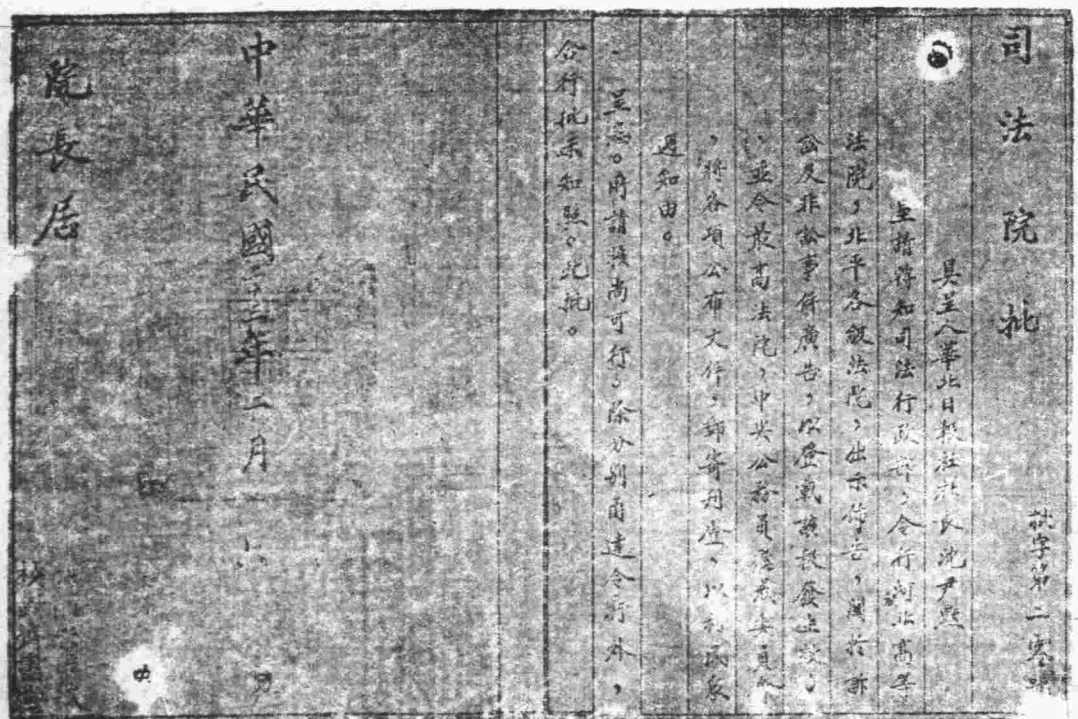 司法院批
批字第二零號
具呈人華北日報社社長沈尹默
呈請轉知司法行政部，令行河北高等
法院，北平各級法院，出示佈告，關於訴
訟及非訟事件廣告，以登載該報發生效，
，並令最高法院，中央公務員懲戒委員會
，將各項公布文件，郵寄刊登，以利民眾
週知由。
呈悉。所請後尚可行，除分別函達令行外，
合行批示知照。此批。
中華民國二十三年二月 六 日
院長居